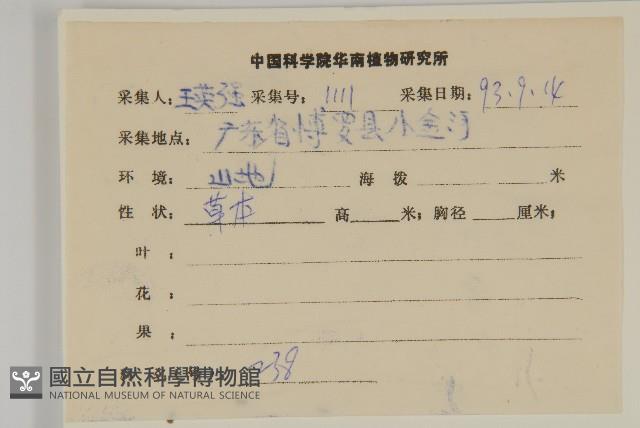 中国科学院华南植物研究所
采集人: 王英强 采集号: 1111 采集日期: 93.9.14
采集地点: 广东省博罗县小金河
环 境: 山地 海 拨 米
性 状: 草本 高 米; 胸径 厘米;
叶 :
花 :
果 :
238
國立自然科學博物館
NATIONAL MUSEUM OF NATURAL SCIENCE